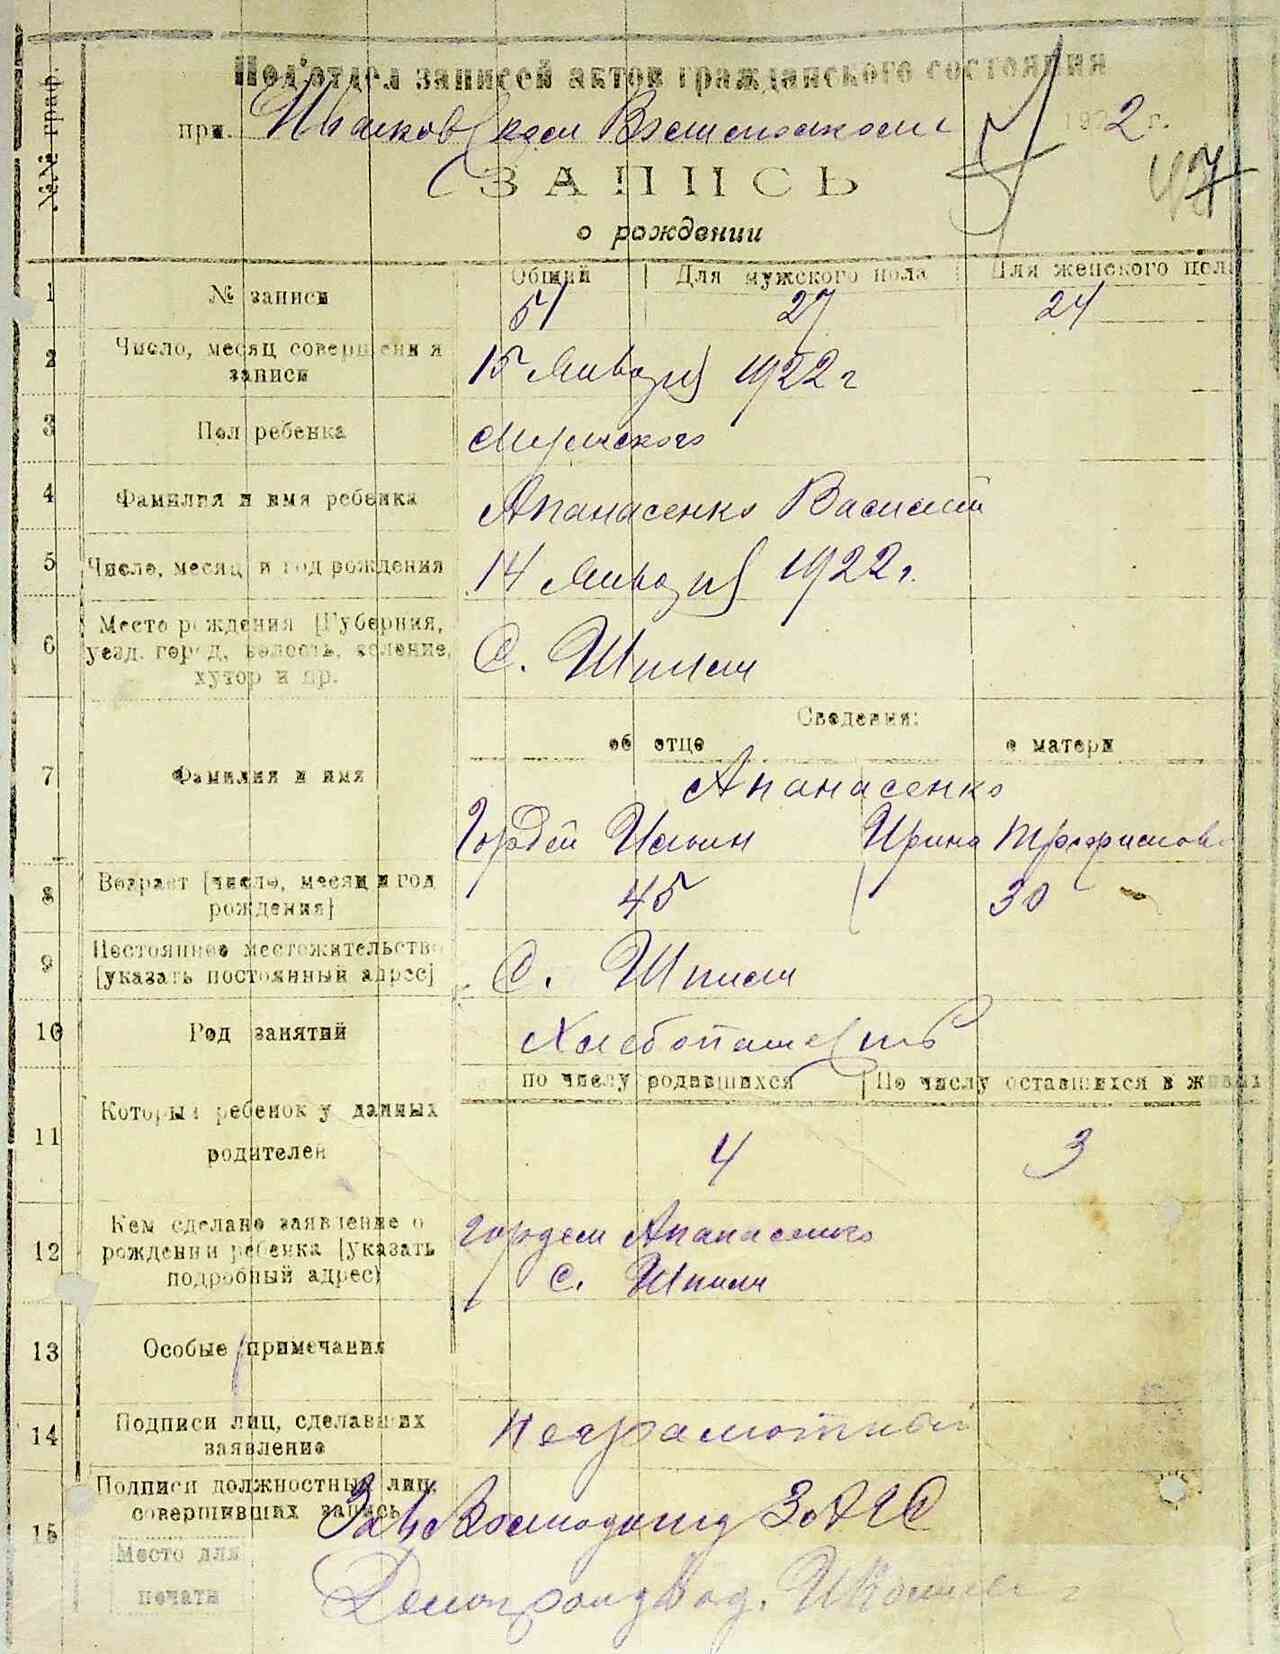 №№ граф.
Под'отдел записей актов гражданского состояния
при Иваковском Волисполкоме 1922 г.
47
ЗАПИСЬ
о рождении
Общий Для мужского пола Для женского пола
1 № записи 51 27 24
2 Число, месяц совершения
записи 15 Января 1922 г
3 Пол ребенка Мужского
4 Фамилия и имя ребенка Апанасенко Василий
5 Число, месяц и год рождения 14 Января 1922 г.
6 Место рождения [Губерния,
уезд, город, волость, селение,
хутор и пр. С. Шпили
Сведения:
об отце о матери
7 Фамилия и имя Апанасенко
Гордей Ильин Ирина Трофимов
8 Возраст [число, месяц и год
рождения] 45 30
9 Постоянное местожительство
[указать постоянный адрес] С. Шпили
10 Род занятий Хлебопашество
по числу родившихся По числу оставшихся в живых
11 Который ребенок у данных
родителей 4 3
12 Кем сделано заявление о
рождении ребенка [указать
подробный адрес) Гордеем Апанасенко
С. Шпили
13 Особые примечания
14 Подписи лиц, сделавших
заявление Неграмотный
15 Подписи должностных лиц,
совершивших запись ЗАГС
Место для
печати